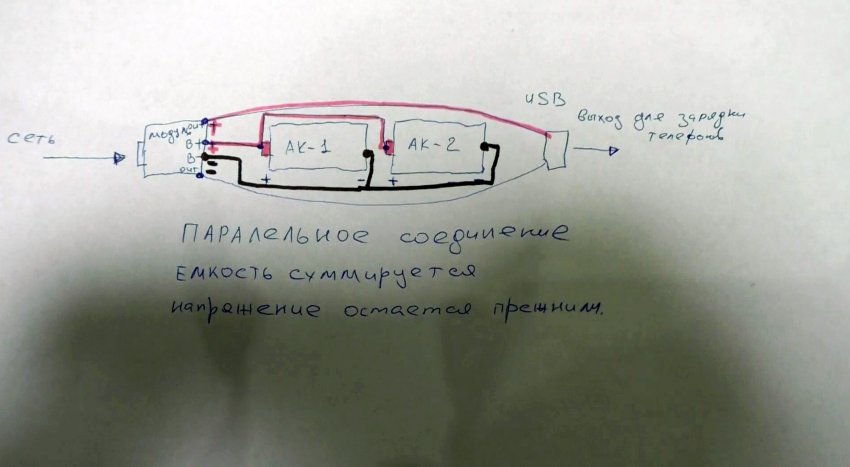 USB
выход для зарядки
телефонов
сеть
модуль out +
B +
B -
out -
АК-1
АК-2
+ - + -
ПАРАЛЕЛЬНОЕ соединение
ЕМКОСТЬ суммируется
напряжение остается прежним.